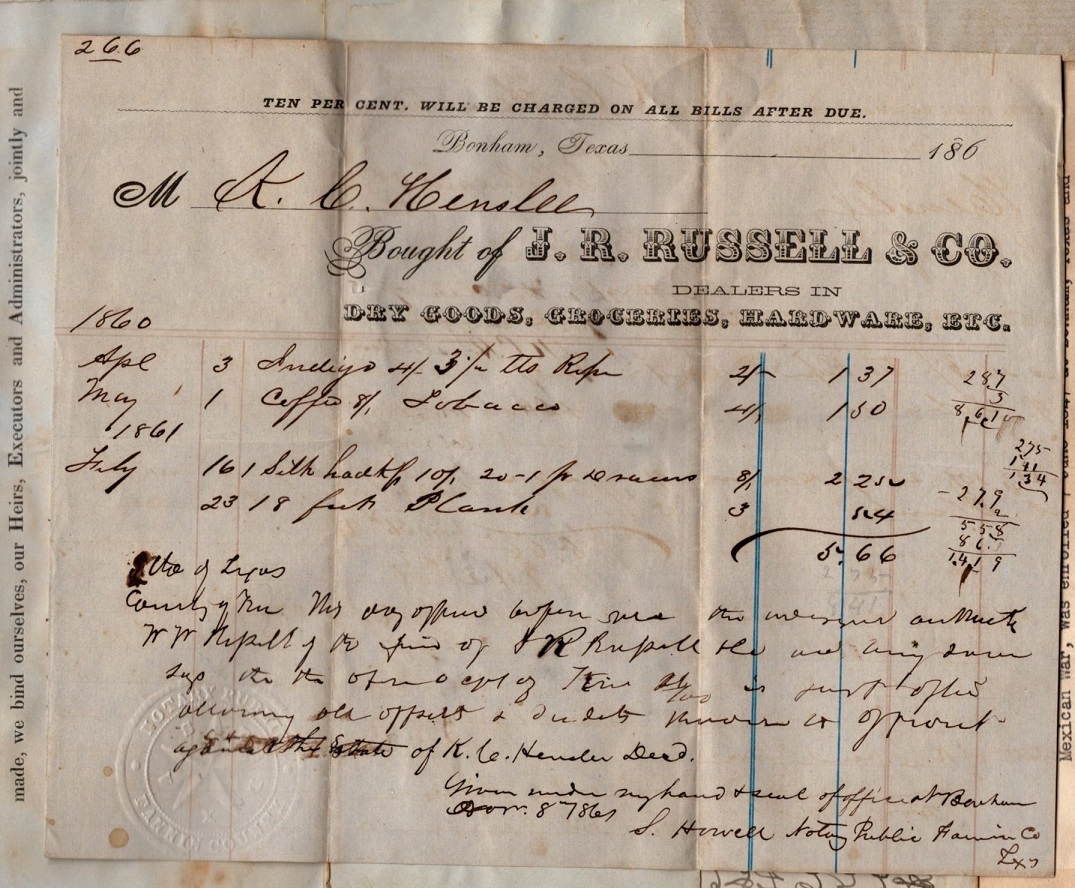 266
TEN PER CENT. WILL BE CHARGED ON ALL BILLS AFTER DUE.
Bonham, Texas 186
M K. C. Henslee
Bought of J. R. RUSSELL & CO.
DEALERS IN
DRY GOODS, GROCERIES, HARDWARE, ETC.
1860
Apl 3 Indigo 4/ 2/ 1 37
May 1 Coffe 8/, Tobacco 4/, 1 50
1861
July 16 1 Silk hadkf 10/, 20-1 pr Drawers 8/, 2 25
23 18 feet Plank 3 54
5.66
287
3
861
275
141
134
279
2
558
861
1419
of Texas
County of Fan This day before me the authority
W W Russell of the firm of J R Russell & Co who being sworn
says the the of is just after
allowing all offsets & credits known
against the Estate of K. C. Henslee Decd.
Given under my hand & seal of office at Bonham
Nov. 8 1861
S. Howell Notary Public Fannin Co
Txs
NOTARY PUBLIC
made, we bind ourselves, our Heirs, Executors and Administrators, jointly and
Mexican War, was enrolled